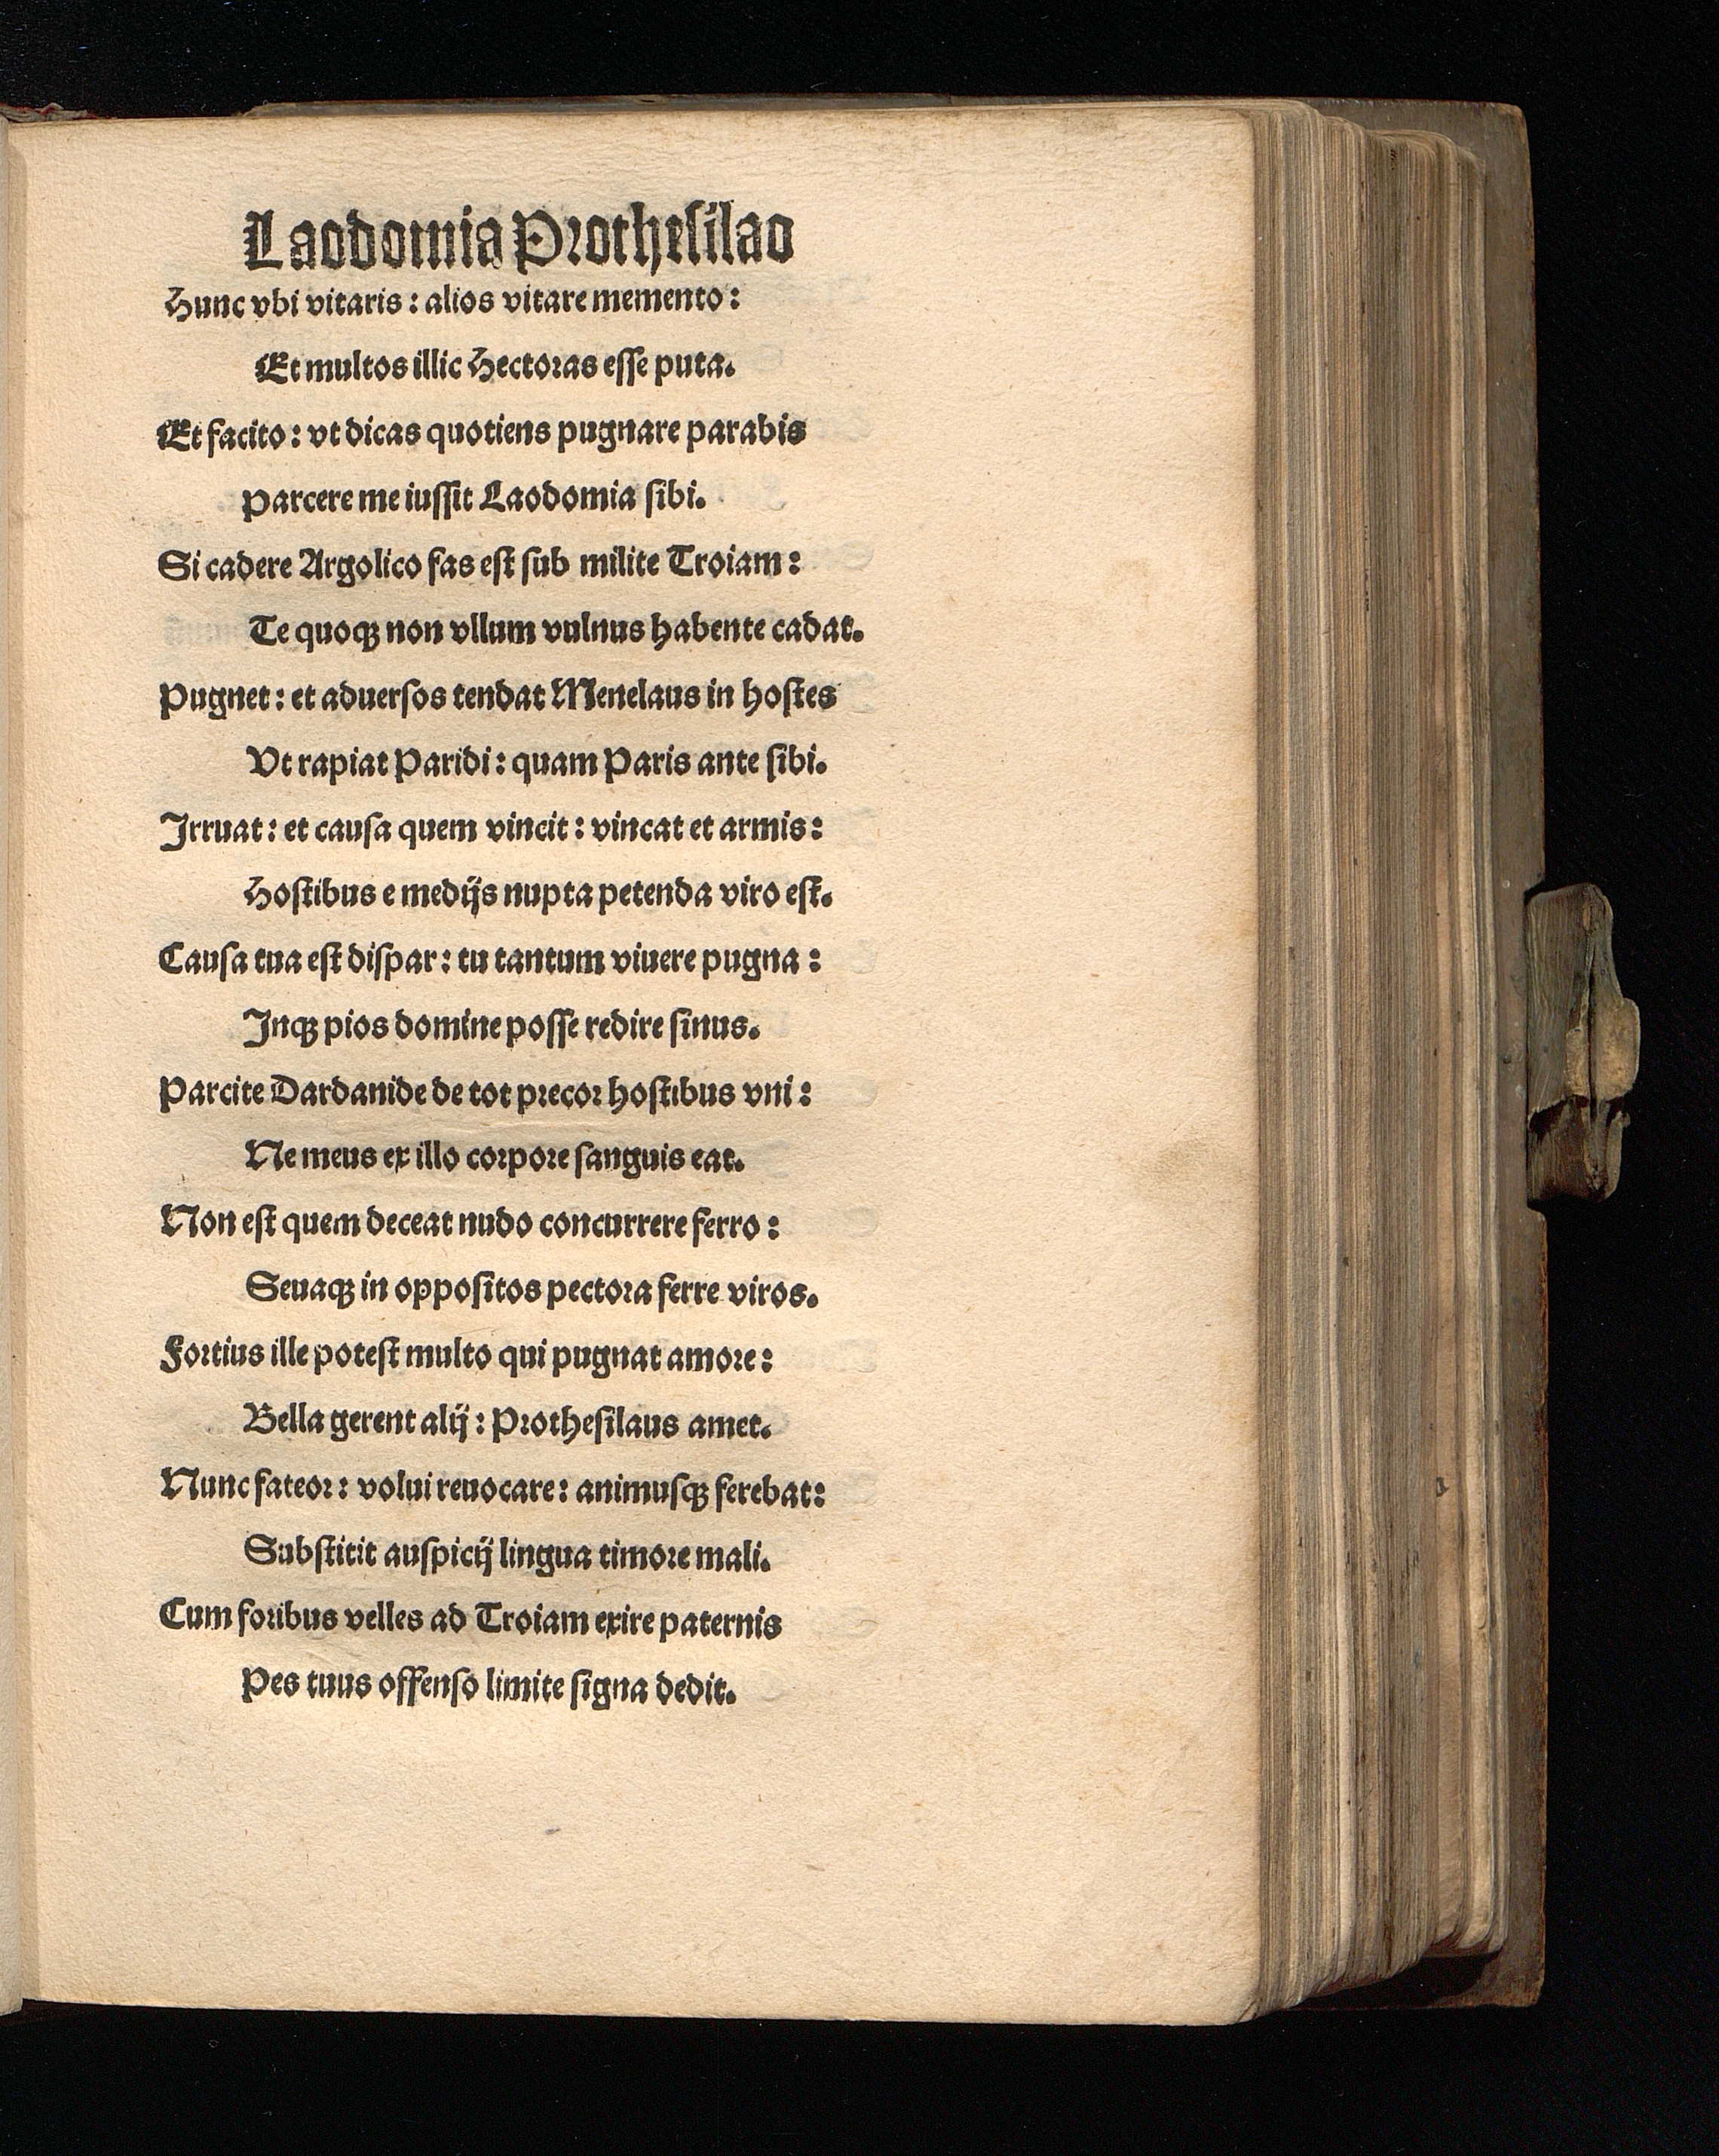 Laodomia Prothesilao
Hunc vbi vitaris: alios vitare memento:
Et multos illic Hectoras esse puta.
Et facito: vt dicas quotiens pugnare parabis
Parcere me iussit Laodomia sibi.
Si cadere Argolico fas est sub milite Troiam:
Te quoqꝫ non vllum vulnus habente cadat.
Pugnet: et aduersos tendat Menelaus in hostes
Vt rapiat Paridi: quam Paris ante sibi.
Irruat: et causa quem vincit: vincat et armis:
Hostibus e medijs nupta petenda viro est.
Causa tua est dispar: tu tantum viuere pugna:
Inqꝫ pios domine posse redire sinus.
Parcite Dardanide de tot precor hostibus vni:
Ne meus ex illo corpore sanguis eat.
Non est quem deceat nudo concurrere ferro:
Seuaqꝫ in oppositos pectora ferre viros.
Fortius ille potest multo qui pugnat amore:
Bella gerent alij: Prothesilaus amet.
Nunc fateor: volui reuocare: animusqꝫ ferebat:
Substitit auspicij lingua timore mali.
Cum foribus velles ad Troiam exire paternis
Pes tuus offenso limite signa dedit.